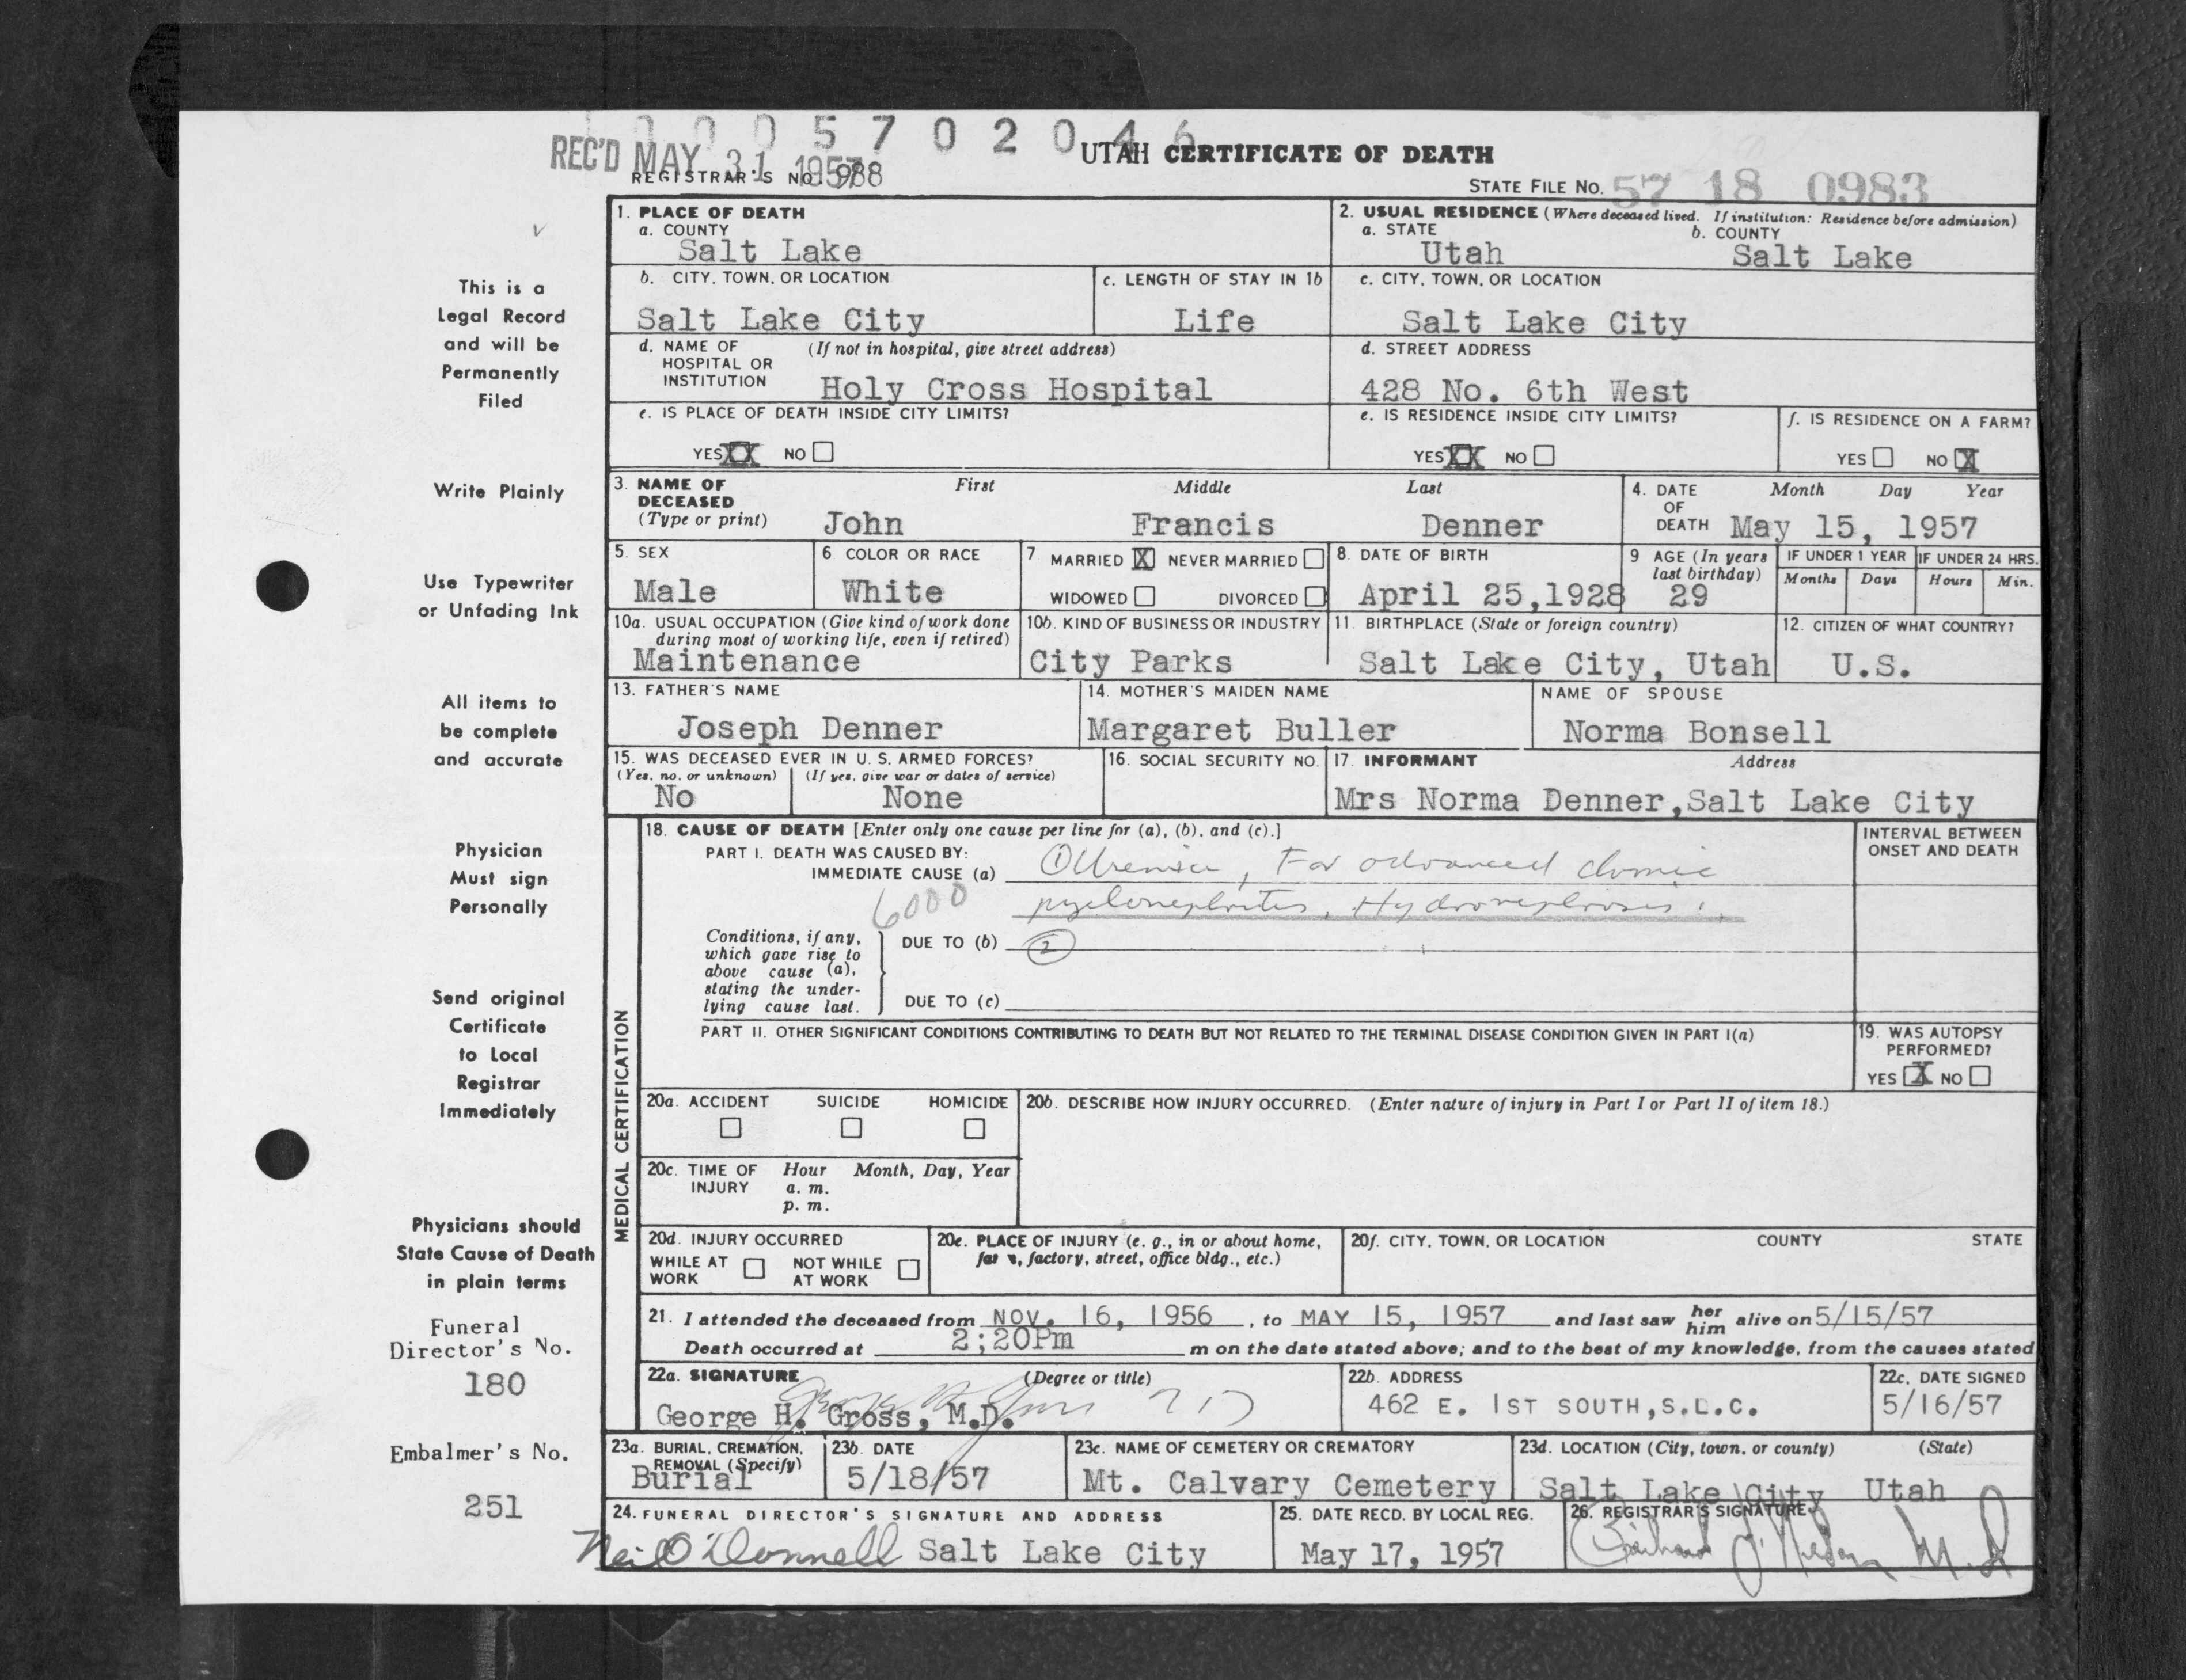 0 0 0 5 7 0 2 0 4 6
REC'D MAY 31 1957
UTAH CERTIFICATE OF DEATH
REGISTRAR'S NO. 988
STATE FILE NO. 57 18 0983
This is a
Legal Record
and will be
Permanently
Filed
Write Plainly
Use Typewriter
or Unfading Ink
All items to
be complete
and accurate
Physician
Must sign
Personally
Send original
Certificate
to Local
Registrar
Immediately
Physicians should
State Cause of Death
in plain terms
Funeral
Director's No.
180
Embalmer's No.
251
1. PLACE OF DEATH
a. COUNTY
Salt Lake
2. USUAL RESIDENCE (Where deceased lived. If institution: Residence before admission)
a. STATE b. COUNTY
Utah Salt Lake
b. CITY, TOWN, OR LOCATION
Salt Lake City
c. LENGTH OF STAY IN 1b
Life
c. CITY, TOWN, OR LOCATION
Salt Lake City
d. NAME OF (If not in hospital, give street address)
HOSPITAL OR
INSTITUTION Holy Cross Hospital
d. STREET ADDRESS
428 No. 6th West
e. IS PLACE OF DEATH INSIDE CITY LIMITS?
YES XX NO
e. IS RESIDENCE INSIDE CITY LIMITS?
YES XX NO
f. IS RESIDENCE ON A FARM?
YES NO X
3. NAME OF First Middle Last
DECEASED
(Type or print) John Francis Denner
4. DATE Month Day Year
OF
DEATH May 15, 1957
5. SEX
Male
6 COLOR OR RACE
White
7 MARRIED X NEVER MARRIED
WIDOWED DIVORCED
8. DATE OF BIRTH
April 25,1928
9 AGE (In years
last birthday)
29
IF UNDER 1 YEAR
Months Days
IF UNDER 24 HRS.
Hours Min.
10a. USUAL OCCUPATION (Give kind of work done
during most of working life, even if retired)
Maintenance
10b. KIND OF BUSINESS OR INDUSTRY
City Parks
11. BIRTHPLACE (State or foreign country)
Salt Lake City, Utah
12. CITIZEN OF WHAT COUNTRY?
U.S.
13. FATHER'S NAME
Joseph Denner
14. MOTHER'S MAIDEN NAME
Margaret Buller
NAME OF SPOUSE
Norma Bonsell
15. WAS DECEASED EVER IN U. S. ARMED FORCES?
(Yes, no, or unknown) (If yes, give war or dates of service)
No None
16. SOCIAL SECURITY NO.
17. INFORMANT Address
Mrs Norma Denner,Salt Lake City
MEDICAL CERTIFICATION
18. CAUSE OF DEATH [Enter only one cause per line for (a), (b), and (c).]
INTERVAL BETWEEN
ONSET AND DEATH
PART I. DEATH WAS CAUSED BY:
IMMEDIATE CAUSE (a) ① Uremia, Far advanced chronic
6000 pyelonephritis, Hydronephrosis
Conditions, if any,
which gave rise to
above cause (a),
stating the under-
lying cause last.
DUE TO (b) ②
DUE TO (c)
PART II. OTHER SIGNIFICANT CONDITIONS CONTRIBUTING TO DEATH BUT NOT RELATED TO THE TERMINAL DISEASE CONDITION GIVEN IN PART I(a)
19. WAS AUTOPSY
PERFORMED?
YES X NO
20a. ACCIDENT SUICIDE HOMICIDE
20b. DESCRIBE HOW INJURY OCCURRED. (Enter nature of injury in Part I or Part II of item 18.)
20c. TIME OF Hour Month, Day, Year
INJURY a. m.
p. m.
20d. INJURY OCCURRED
WHILE AT NOT WHILE
WORK AT WORK
20e. PLACE OF INJURY (e. g., in or about home,
farm, factory, street, office bldg., etc.)
20f. CITY, TOWN, OR LOCATION COUNTY STATE
21. I attended the deceased from NOV. 16, 1956, to MAY 15, 1957 and last saw her him alive on 5/15/57
Death occurred at 2;20Pm m on the date stated above; and to the best of my knowledge, from the causes stated
22a. SIGNATURE (Degree or title)
George H. Gross, M.D.
22b. ADDRESS
462 E. 1ST SOUTH,S.L.C.
22c. DATE SIGNED
5/16/57
23a. BURIAL, CREMATION,
REMOVAL (Specify)
Burial
23b. DATE
5/18/57
23c. NAME OF CEMETERY OR CREMATORY
Mt. Calvary Cemetery
23d. LOCATION (City, town, or county) (State)
Salt Lake City Utah
24. FUNERAL DIRECTOR'S SIGNATURE AND ADDRESS
Neil O'Donnell Salt Lake City
25. DATE RECD. BY LOCAL REG.
May 17, 1957
26. REGISTRAR'S SIGNATURE
M.D